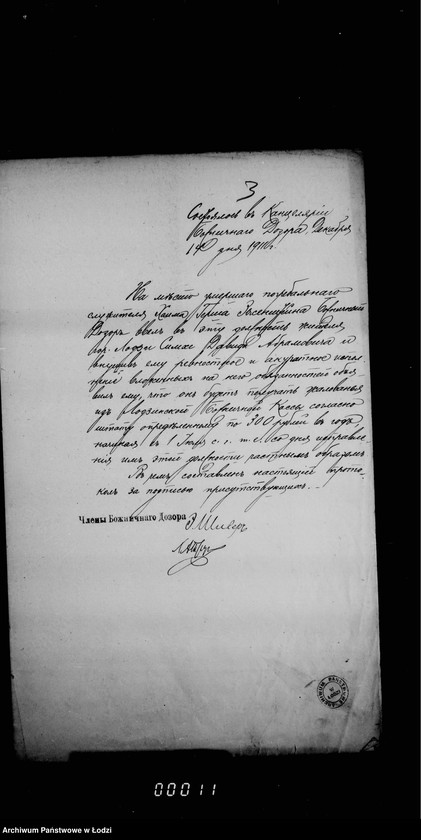 3
Состоялось въ Канцеляріи
Божничнаго Дозора, Декабря
14 дня 1910 г.
На мѣсто умершаго погребальнаго
служителя Хаима Герша Божничный
Дозоръ ввелъ въ эту должность жителя
гор. Лодзи Симас Давида Абрамовича и
внушивъ ему ревностное и акуратное испол
неніе вложенныхъ на него обязанностей объя
вилъ ему, что онъ будетъ получать жалованья
изъ Лодзинской Божничной Кассы согласно
штату опредѣленному по 300 рублей въ годъ
начиная съ 1 с. г. т. е. со дня исправле
нія имъ этой должности частнымъ образомъ
Въ чемъ составленъ настоящій прото
колъ за подписью присутствующихъ.
Члены Божничнаго Дозора
00011
Archiwum Państwowe w Łodzi